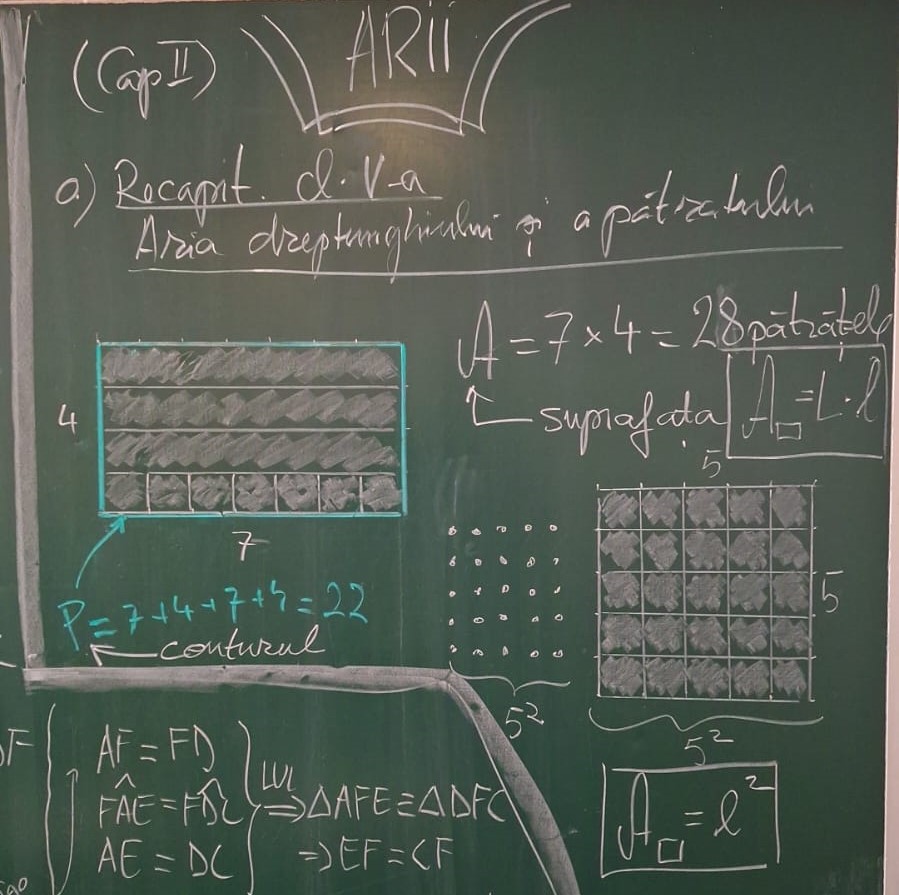 (Cap II)
ARII
a) Recapit. cl. V-a
Aria dreptunghiului și a pătratului
A = 7 × 4 = 28 pătrățele
suprafața
A▭ = L · l
4
7
P = 7 + 4 + 7 + 4 = 22
conturul
5²
5
5
5²
A□ = l²
AF = FD
FÂE = FD̂C
AE = DC
LUL
⇒ ΔAFE ≡ ΔDFC
⇒ EF = CF